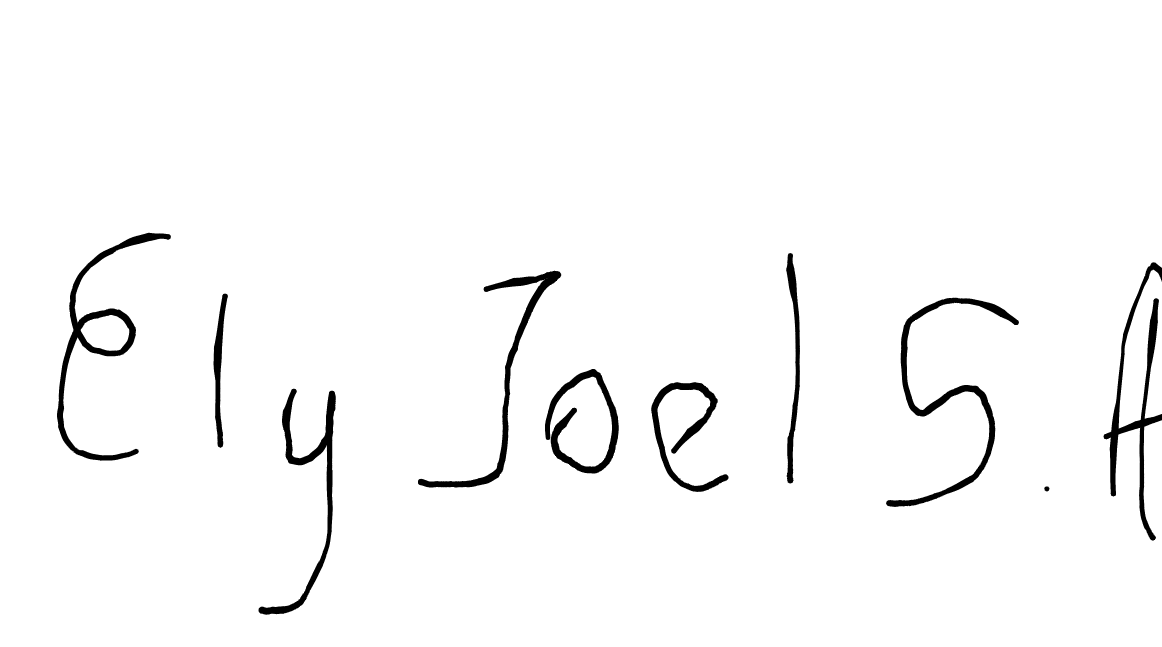 Ely Joel S. A